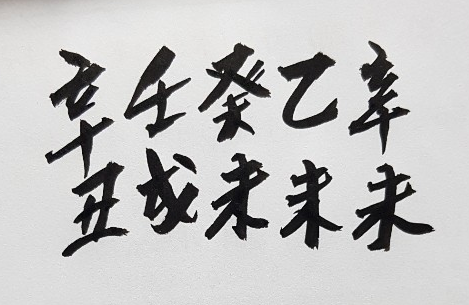 辛壬癸乙辛
丑戌未未未